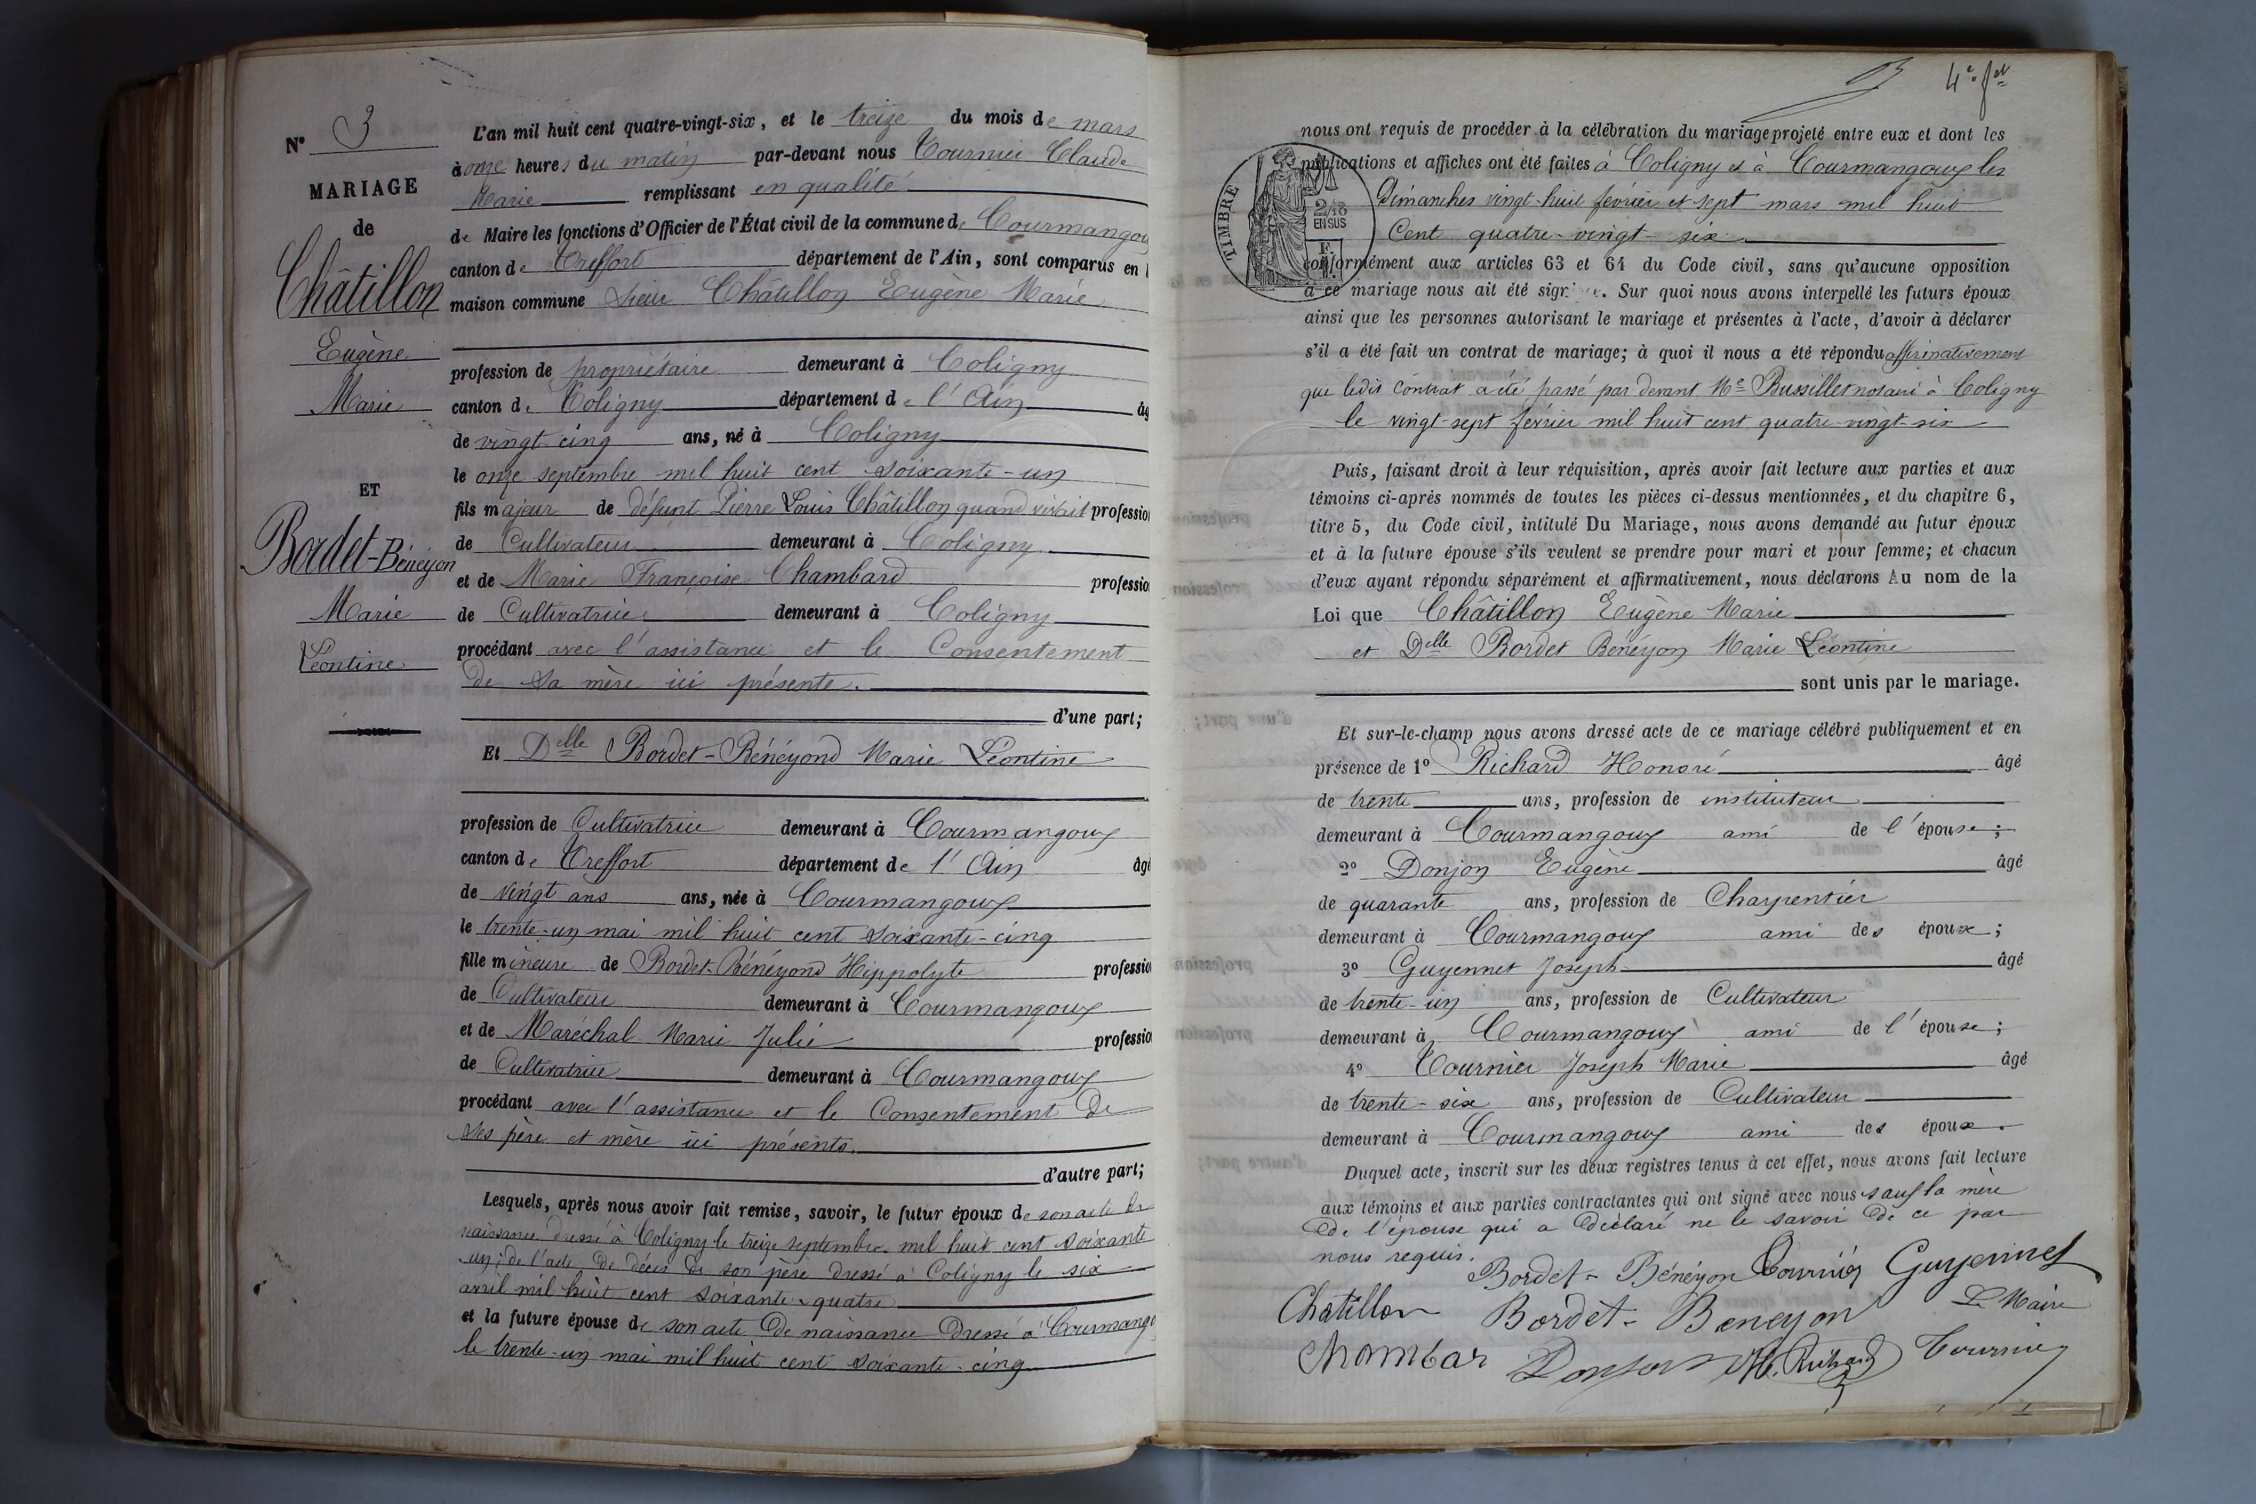 N° 3
MARIAGE
de
Châtillon
Eugène
Marie
ET
Bordet-Bénéyon
Marie
Léontine
L'an mil huit cent quatre-vingt-six, et le treize du mois de mars
à onze heures du matin par-devant nous Tournier Claude
Marie remplissant en qualité
de Maire les fonctions d'Officier de l'État civil de la commune de Courmangou
canton de Treffort département de l'Ain, sont comparus en l
maison commune Sieur Châtillon Eugène Marie
profession de propriétaire demeurant à Coligny
canton de Coligny département de l'Ain âg
de vingt-cinq ans, né à Coligny
le onze septembre mil huit cent soixante-un
fils majeur de défunt Pierre Louis Châtillon quand vivait profession
de Cultivateur demeurant à Coligny
et de Marie Françoise Chambard professio
de Cultivatrice demeurant à Coligny
procédant avec l'assistance et le Consentement
de sa mère ici présente.
d'une part;
Et Delle Bordet-Bénéyond Marie Léontine
profession de Cultivatrice demeurant à Courmangoux
canton de Treffort département de l'Ain âgé
de vingt ans ans, née à Courmangoux
le trente-un mai mil huit cent soixante-cinq
fille mineure de Bordet-Bénéyond Hippolyte professio
de Cultivateur demeurant à Courmangoux
et de Maréchal Marie Julie professio
de Cultivatrice demeurant à Courmangoux
procédant avec l'assistance et le Consentement de
ses père et mère ici présents.
d'autre part;
Lesquels, après nous avoir fait remise, savoir, le futur époux de son acte de
naissance dressé à Coligny le treize septembre mil huit cent soixante
un; de l'acte de décès de son père dressé à Coligny le six
avril mil huit cent soixante-quatre
et la future épouse de son acte de naissance dressé à Courmango
le trente-un mai mil huit cent soixante-cinq
4e fet
nous ont requis de procéder à la célébration du mariage projeté entre eux et dont les
publications et affiches ont été faites à Coligny et à Courmangoux les
Dimanches vingt-huit février et sept mars mil huit
Cent quatre-vingt-six
TIMBRE
2/10
EN SUS
F.
conformément aux articles 63 et 64 du Code civil, sans qu'aucune opposition
à ce mariage nous ait été sign. Sur quoi nous avons interpellé les futurs époux
ainsi que les personnes autorisant le mariage et présentes à l'acte, d'avoir à déclarer
s'il a été fait un contrat de mariage; à quoi il nous a été répondu affirmativement
que ledit contrat a été passé par devant Me Bussillet notaire à Coligny
le vingt-sept février mil huit cent quatre-vingt-six
Puis, faisant droit à leur réquisition, après avoir fait lecture aux parties et aux
témoins ci-après nommés de toutes les pièces ci-dessus mentionnées, et du chapitre 6,
titre 5, du Code civil, intitulé Du Mariage, nous avons demandé au futur époux
et à la future épouse s'ils veulent se prendre pour mari et pour femme; et chacun
d'eux ayant répondu séparément et affirmativement, nous déclarons Au nom de la
Loi que Châtillon Eugène Marie
et Delle Bordet Bénéyon Marie Léontine
sont unis par le mariage.
Et sur-le-champ nous avons dressé acte de ce mariage célébré publiquement et en
présence de 1° Richard Honoré âgé
de trente ans, profession de instituteur
demeurant à Courmangoux ami de l'épouse;
2° Donjon Eugène âgé
de quarante ans, profession de Charpentier
demeurant à Courmangoux ami des époux;
3° Guyennet Joseph âgé
de trente-un ans, profession de Cultivateur
demeurant à Courmangoux ami de l'épouse;
4° Tournier Joseph Marie âgé
de trente-six ans, profession de Cultivateur
demeurant à Courmangoux ami des époux.
Duquel acte, inscrit sur les deux registres tenus à cet effet, nous avons fait lecture
aux témoins et aux parties contractantes qui ont signé avec nous sauf la mère
de l'épouse qui a déclaré ne le savoir de ce par
nous requis.
Bordet-Bénéyon Tournier Guyennet
Chatillon Bordet-Beneyon Le Maire
Chambar Donjon H. Richard Tournier